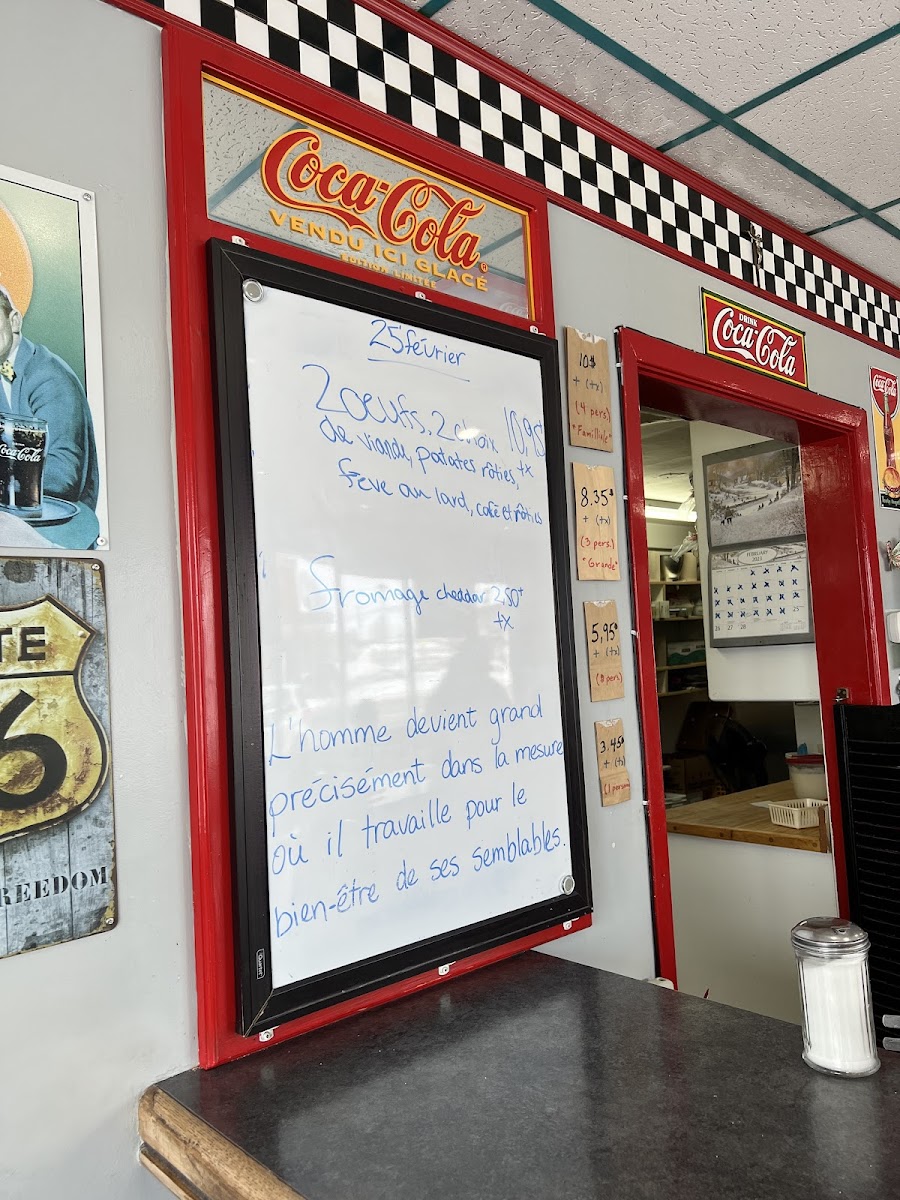 Coca-Cola
VENDU ICI GLACÉ
ÉDITION LIMITÉE
25 février
2 oeufs, 2 choix 10,95
de viande, patates rôties, tx
fève au lard, café et rôties
fromage cheddar 2,50+
tx
L'homme devient grand
précisément dans la mesure
où il travaille pour le
bien-être de ses semblables.
Quartet
10$
+ (tx)
(4 pers.)
"Familliale"
8.35$
+ (tx)
(3 pers.)
"Grande"
5,95$
+ (tx)
pers.)
3.45$
+ (tx)
(1 personne
DRINK
Coca-Cola
Coca-Cola
FEBRUARY
2023
25
26 27 28
Coca-Cola
TE
6
REEDOM